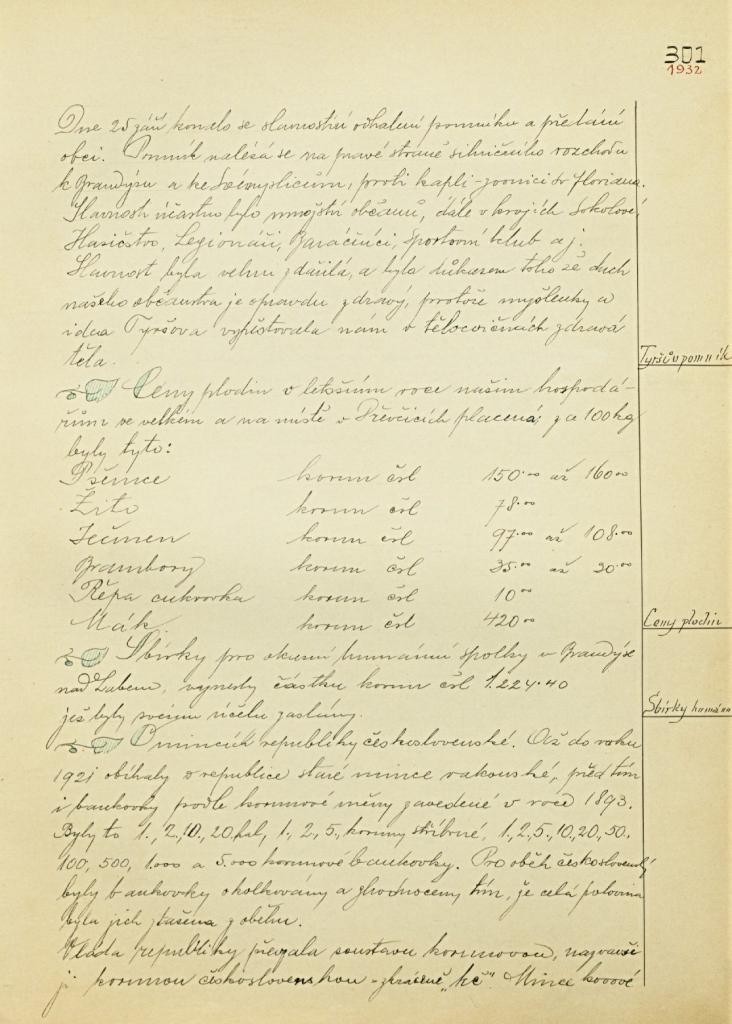 301
1932
Dne 25 září konalo se slavnostní odhalení pomníku a předání
obci. Pomník nalézá se na pravé straně silničního rozchodu
k Brandýsu a ke Dřevnylicům, proti kapli-zvonici Sv Floriana.
Slavnosti účastno bylo množství občanů, dále v krojích Sokolové,
Hasičstvo, Legionáři, Baráčníci, Sportovní klub a j.
Slavnost byla velmi zdařilá, a byla důkazem toho že duch
našeho občanstva je opravdu zdravý, protože myšlenky a
idea Tyršova vypěstovala nám v tělocvičnách zdravá
těla.
Tyršův pomník
Ceny plodin v letošním roce našim hospodá-
řům ve velkém a na místě v Dřevčicích placená; za 100 kg
byly tyto:
Pšenice korun čsl 150·00 až 160·00
Žito korun čsl 78·00
Ječmen korun čsl 97·00 až 108·00
Brambory korun čsl 35·00 až 30·00
Řepa cukrovka korun čsl 10·00
Mák korun čsl 420·00
Ceny plodin
Sbírky pro okresní humánní spolky v Brandýse
nad Labem, vynesly částku korun čsl 1.224·40
jež byly svému účelu zaslány.
Sbírky humánní
O mincích republiky československé. Až do roku
1921 obíhaly v republice staré mince rakouské, před tím
i bankovky podle korunové měny zavedené v roce 1893.
Byly to 1., 2., 10., 20 hal, 1., 2., 5., koruny stříbrné, 1., 2., 5., 10., 20., 50.
100, 500, 1.000 a 5.000 korunové bankovky. Pro oběh československý
byly bankovky okolkovány a zhodnoceny tím, že celá polovina
byla jich stažena z oběhu.
Vláda republiky převzala soustavu korunovou, nazvavši
ji korunou československou - zkráceně „kč". Mince kovové